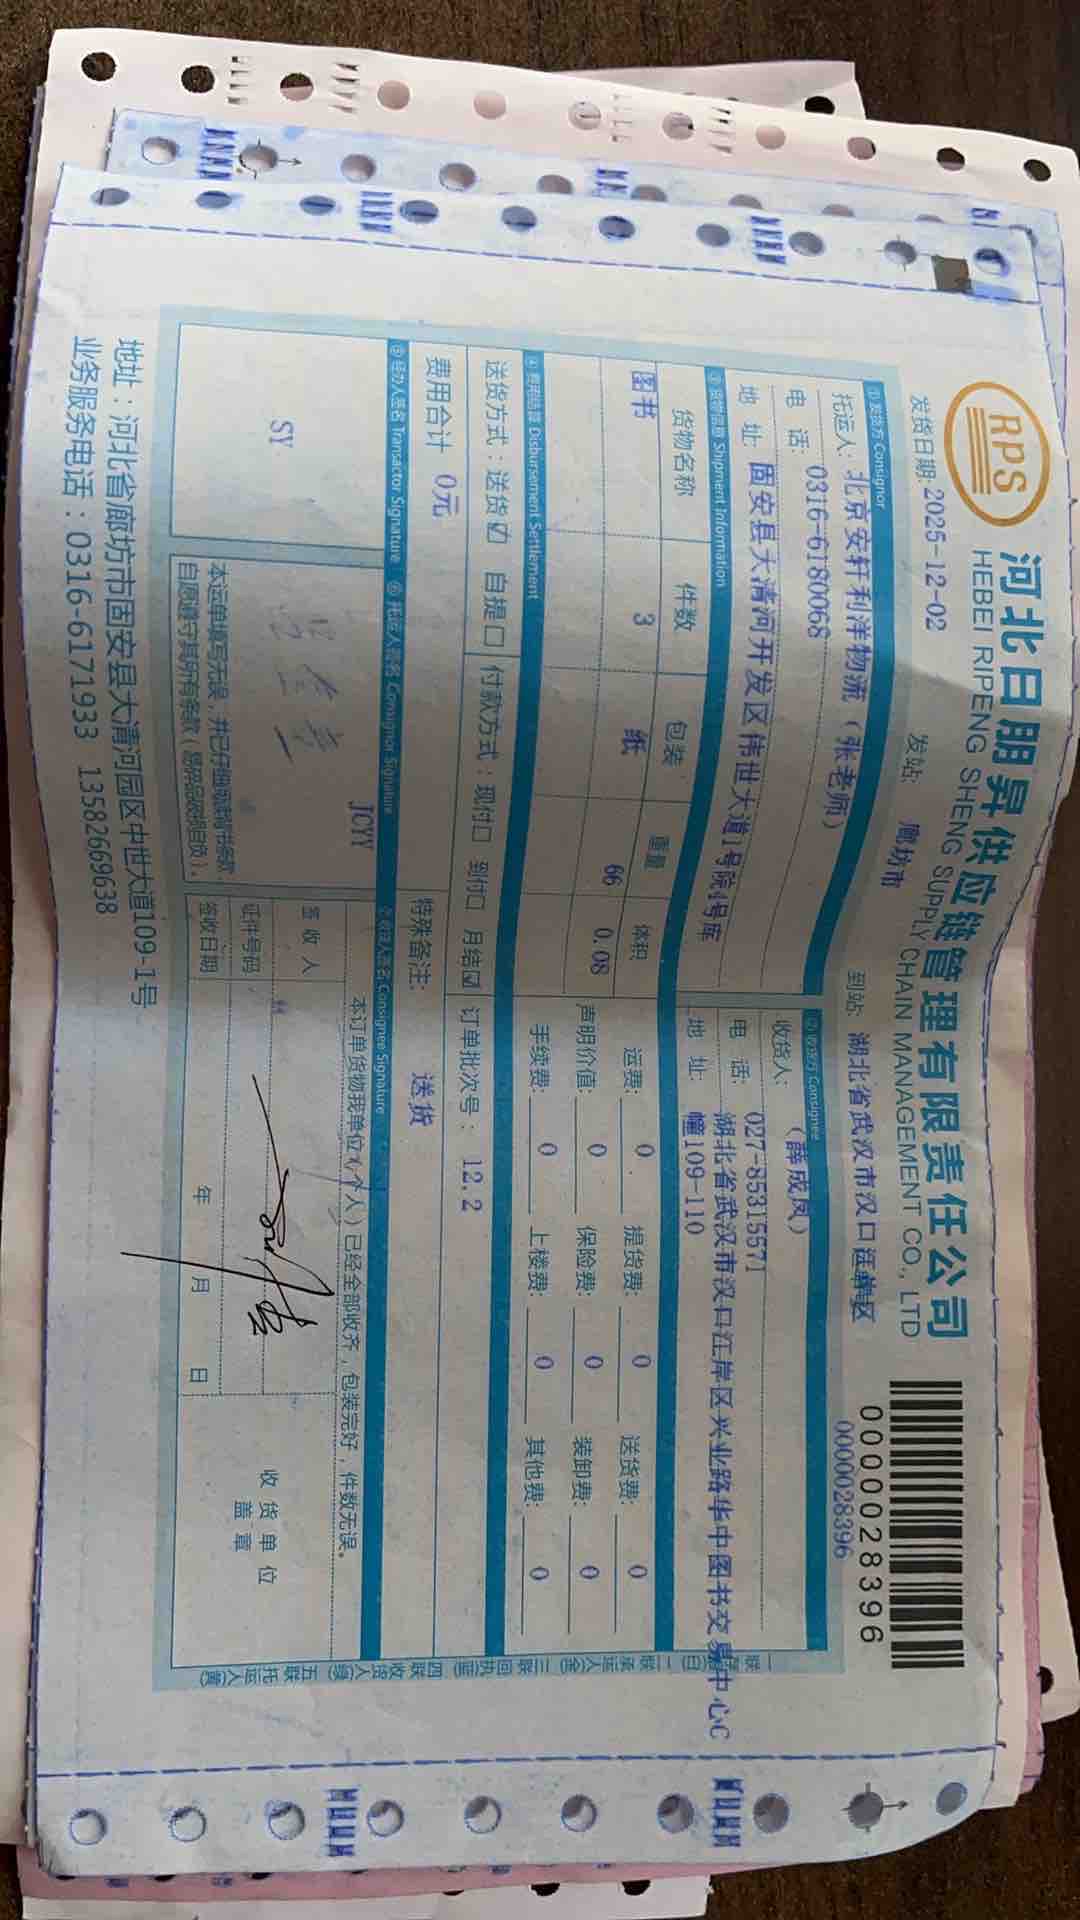 RPS
河北日朋昇供应链管理有限责任公司
HEBEI RIPENG SHENG SUPPLY CHAIN MANAGEMENT CO., LTD
0000028396
0000028396
发货日期: 2025-12-02 发站: 廊坊市 到站: 湖北省武汉市汉口江岸区
①发货方 Consignor
托运人: 北京安轩利洋物流（张老师）
电 话: 0316-6180068
地 址: 固安县大清河开发区伟世大道1号院4号库
②收货方 Consignee
收货人: （薛成凤）
电 话: 027-85315571
地 址: 湖北省武汉市汉口江岸区兴业路华中图书交易中心C
幢109-110
③货物信息 Shipment Information
货物名称 件数 包装 重量 体积
图书 3 纸 66 0.08
运费: 0 提货费: 0 送货费: 0
声明价值: 0 保险费: 0 装卸费: 0
手续费: 0 上楼费: 0 其他费: 0
④费用结算 Disbursement Settlement
送货方式：送货☑ 自提□ 付款方式：现付□ 到付□ 月结☑ 订单批次号: 12.2
费用合计 0元 特殊备注: 送货
⑤经办人签名 Transactor Signature ⑥托运人签名 Consignor Signature ⑦收货人签名 Consignee Signature
SY
JCYY
本运单填写无误，并已仔细阅读背书条款
自愿遵守其所有条款（易碎品破损自负）。
本订单货物我单位(个人)已经全部收齐，包装完好，件数无误。
签 收 人
证件号码
签收日期 年 月 日
收货单位
盖章
地址：河北省廊坊市固安县大清河园区中世大道109-1号
业务服务电话：0316-6171933 13582669638